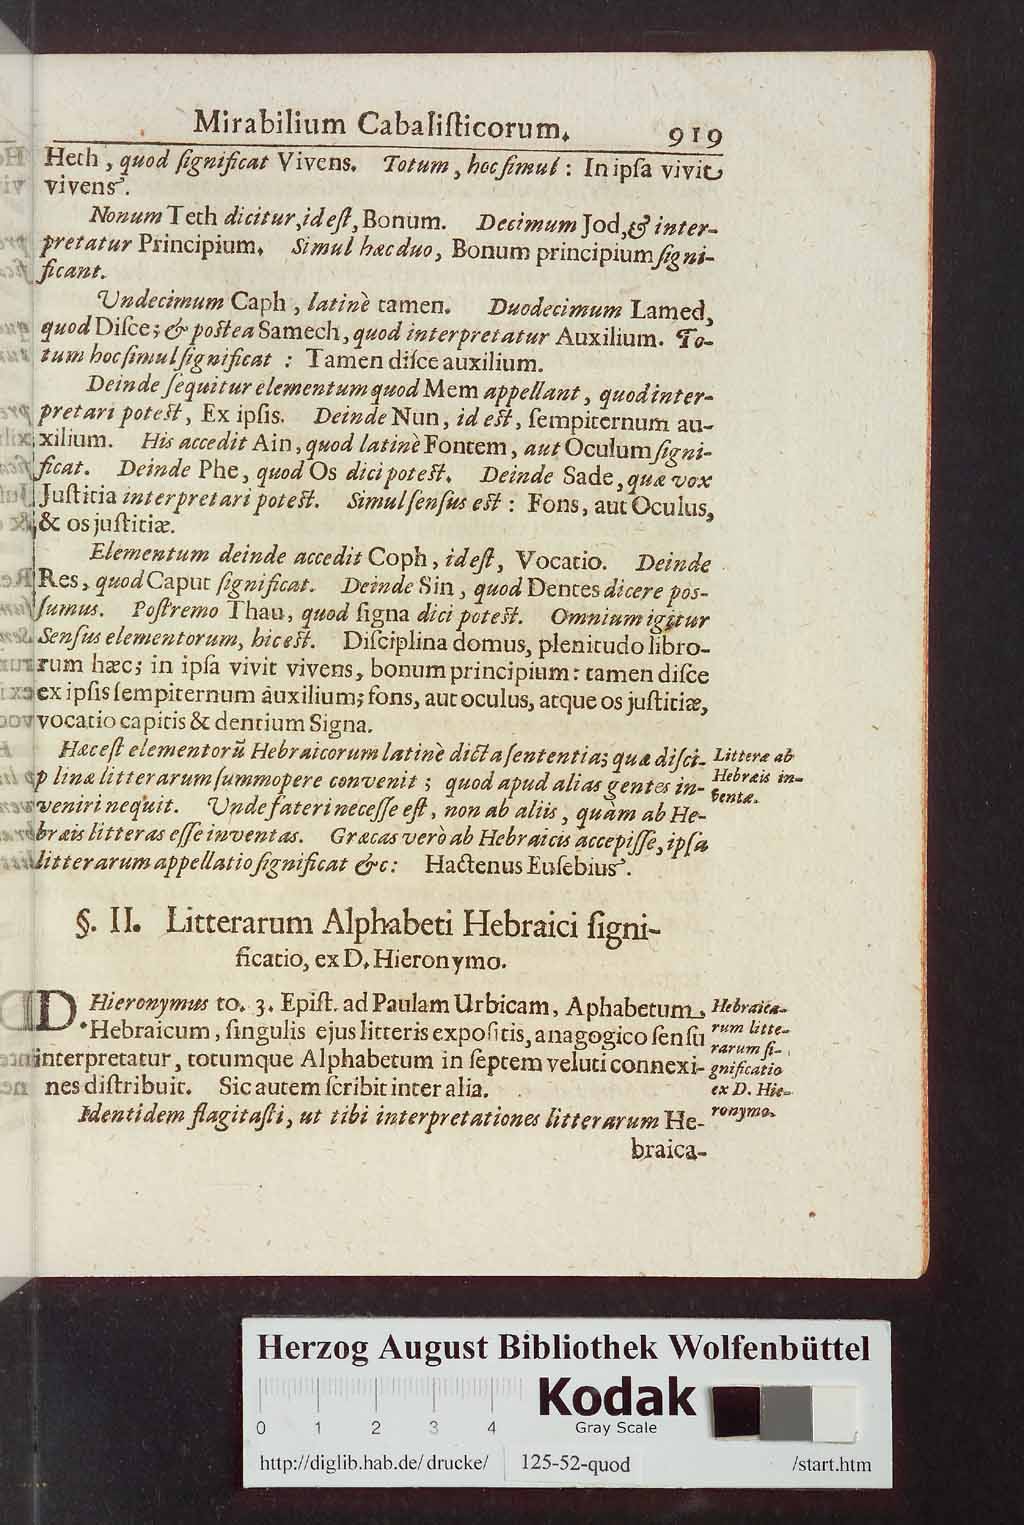 Mirabilium Cabaliſticorum. 919
Heth, quod ſignificat Vivens. Totum, hoc ſimul: In ipſa vivit
vivens.
Nonum Teth dicitur, id eſt, Bonum. Decimum Jod, & inter-
pretatur Principium. Simul hæc duo, Bonum principium ſigni-
ficant.
Undecimum Caph, latinè tamen. Duodecimum Lamed,
quod Diſce; & poſtea Samech, quod interpretatur Auxilium. To-
tum hoc ſimul ſignificat : Tamen diſce auxilium.
Deinde ſequitur elementum quod Mem appellant, quod inter-
pretari poteſt, Ex ipſis. Deinde Nun, id eſt, ſempiternum au-
xilium. His accedit Ain, quod latinè Fontem, aut Oculum ſigni-
ficat. Deinde Phe, quod Os dici poteſt. Deinde Sade, quæ vox
Juſtitia interpretari poteſt. Simul ſenſus eſt: Fons, aut Oculus,
& os juſtitiæ.
Elementum deinde accedit Coph, id eſt, Vocatio. Deinde
Res, quod Caput ſignificat. Deinde Sin, quod Dentes dicere poſ-
ſumus. Poſtremo Thau, quod ſigna dici poteſt. Omnium igitur
Senſus elementorum, hic eſt. Diſciplina domus, plenitudo libro-
rum hæc; in ipſa vivit vivens, bonum principium: tamen diſce
ex ipſis ſempiternum auxilium; fons, aut oculus, atque os juſtitiæ,
vocatio capitis & dentium Signa.
Hæc eſt elementorũ Hebraicorum latinè dicta ſententia; quæ diſci-
plinæ litterarum ſummopere convenit; quod apud alias gentes in-
veniri nequit. Unde fateri neceſſe eſt, non ab aliis, quàm ab He-
bræis litteras eſſe inventas. Græcas verò ab Hebraicis accepiſſe, ipſa
litterarum appellatio ſignificat &c: Hactenus Euſebius.
Litteræ ab
Hebræis in-
ventæ.
§. II. Litterarum Alphabeti Hebraici ſigni-
ficatio, ex D. Hieronymo.
D. Hieronymus to. 3. Epiſt. ad Paulam Urbicam, Aphabetum
Hebraicum, ſingulis ejus litteris expoſitis, anagogico ſenſu
interpretatur, totumque Alphabetum in ſeptem veluti connexi-
nes diſtribuit. Sic autem ſcribit inter alia.
Hebraica-
rum litte-
rarum ſi-
gnificatio
ex D. Hie-
ronymo.
Identidem flagitaſti, ut tibi interpretationes litterarum He-
braica-
Herzog August Bibliothek Wolfenbüttel
Kodak
Gray Scale
0 1 2 3 4
http://diglib.hab.de/drucke/ 125-52-quod /start.htm